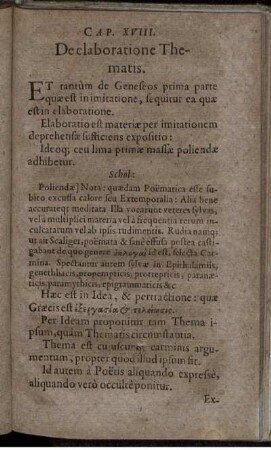 CAP. XVIII.
De elaboratione The-
matis.
ET tantùm de Geneseos prima parte
quæ est in imitatione, sequitur ea quæ
est in elaboratione.
Elaboratio est materiæ per imitationem
deprehensæ sufficiens expositio:
Ideoq; ceu lima primæ massæ poliendæ
adhibetur.
Schol:
Poliendæ] Nota: quædam Poëmatica esse subi-
to excussa calore seu Extemporalia: Alia bene
accurateq; meditata Illa vocarunt veteres sylvas,
vel à multiplici materia vel à frequentia rerum in-
culcatarum vel ab ipsis rudimentis. Rudia namq;
ut ait Scaliger, poëmata & sanè effusa postea casti-
gabant de quo genere id est, selecta Car-
mina. Spectantur autem sylvæ in Epithalamiis,
genethliacis, propempticis, protrepticis: paræne-
ticis, paramythicis, epigrammaticis &c
Hæc est in Idea, & pertractione: quæ
Græcis est ἐξεργασία & τελείωσις.
Per Ideam proponitur tam Thema i-
psum, quàm Thematis circumstantia.
Thema est cujuscunq; carminis argu-
mentum, propter quod illud ipsum fit.
Id autem à Poëtis aliquando expressè,
aliquando verò occultè ponitur.
Ex-